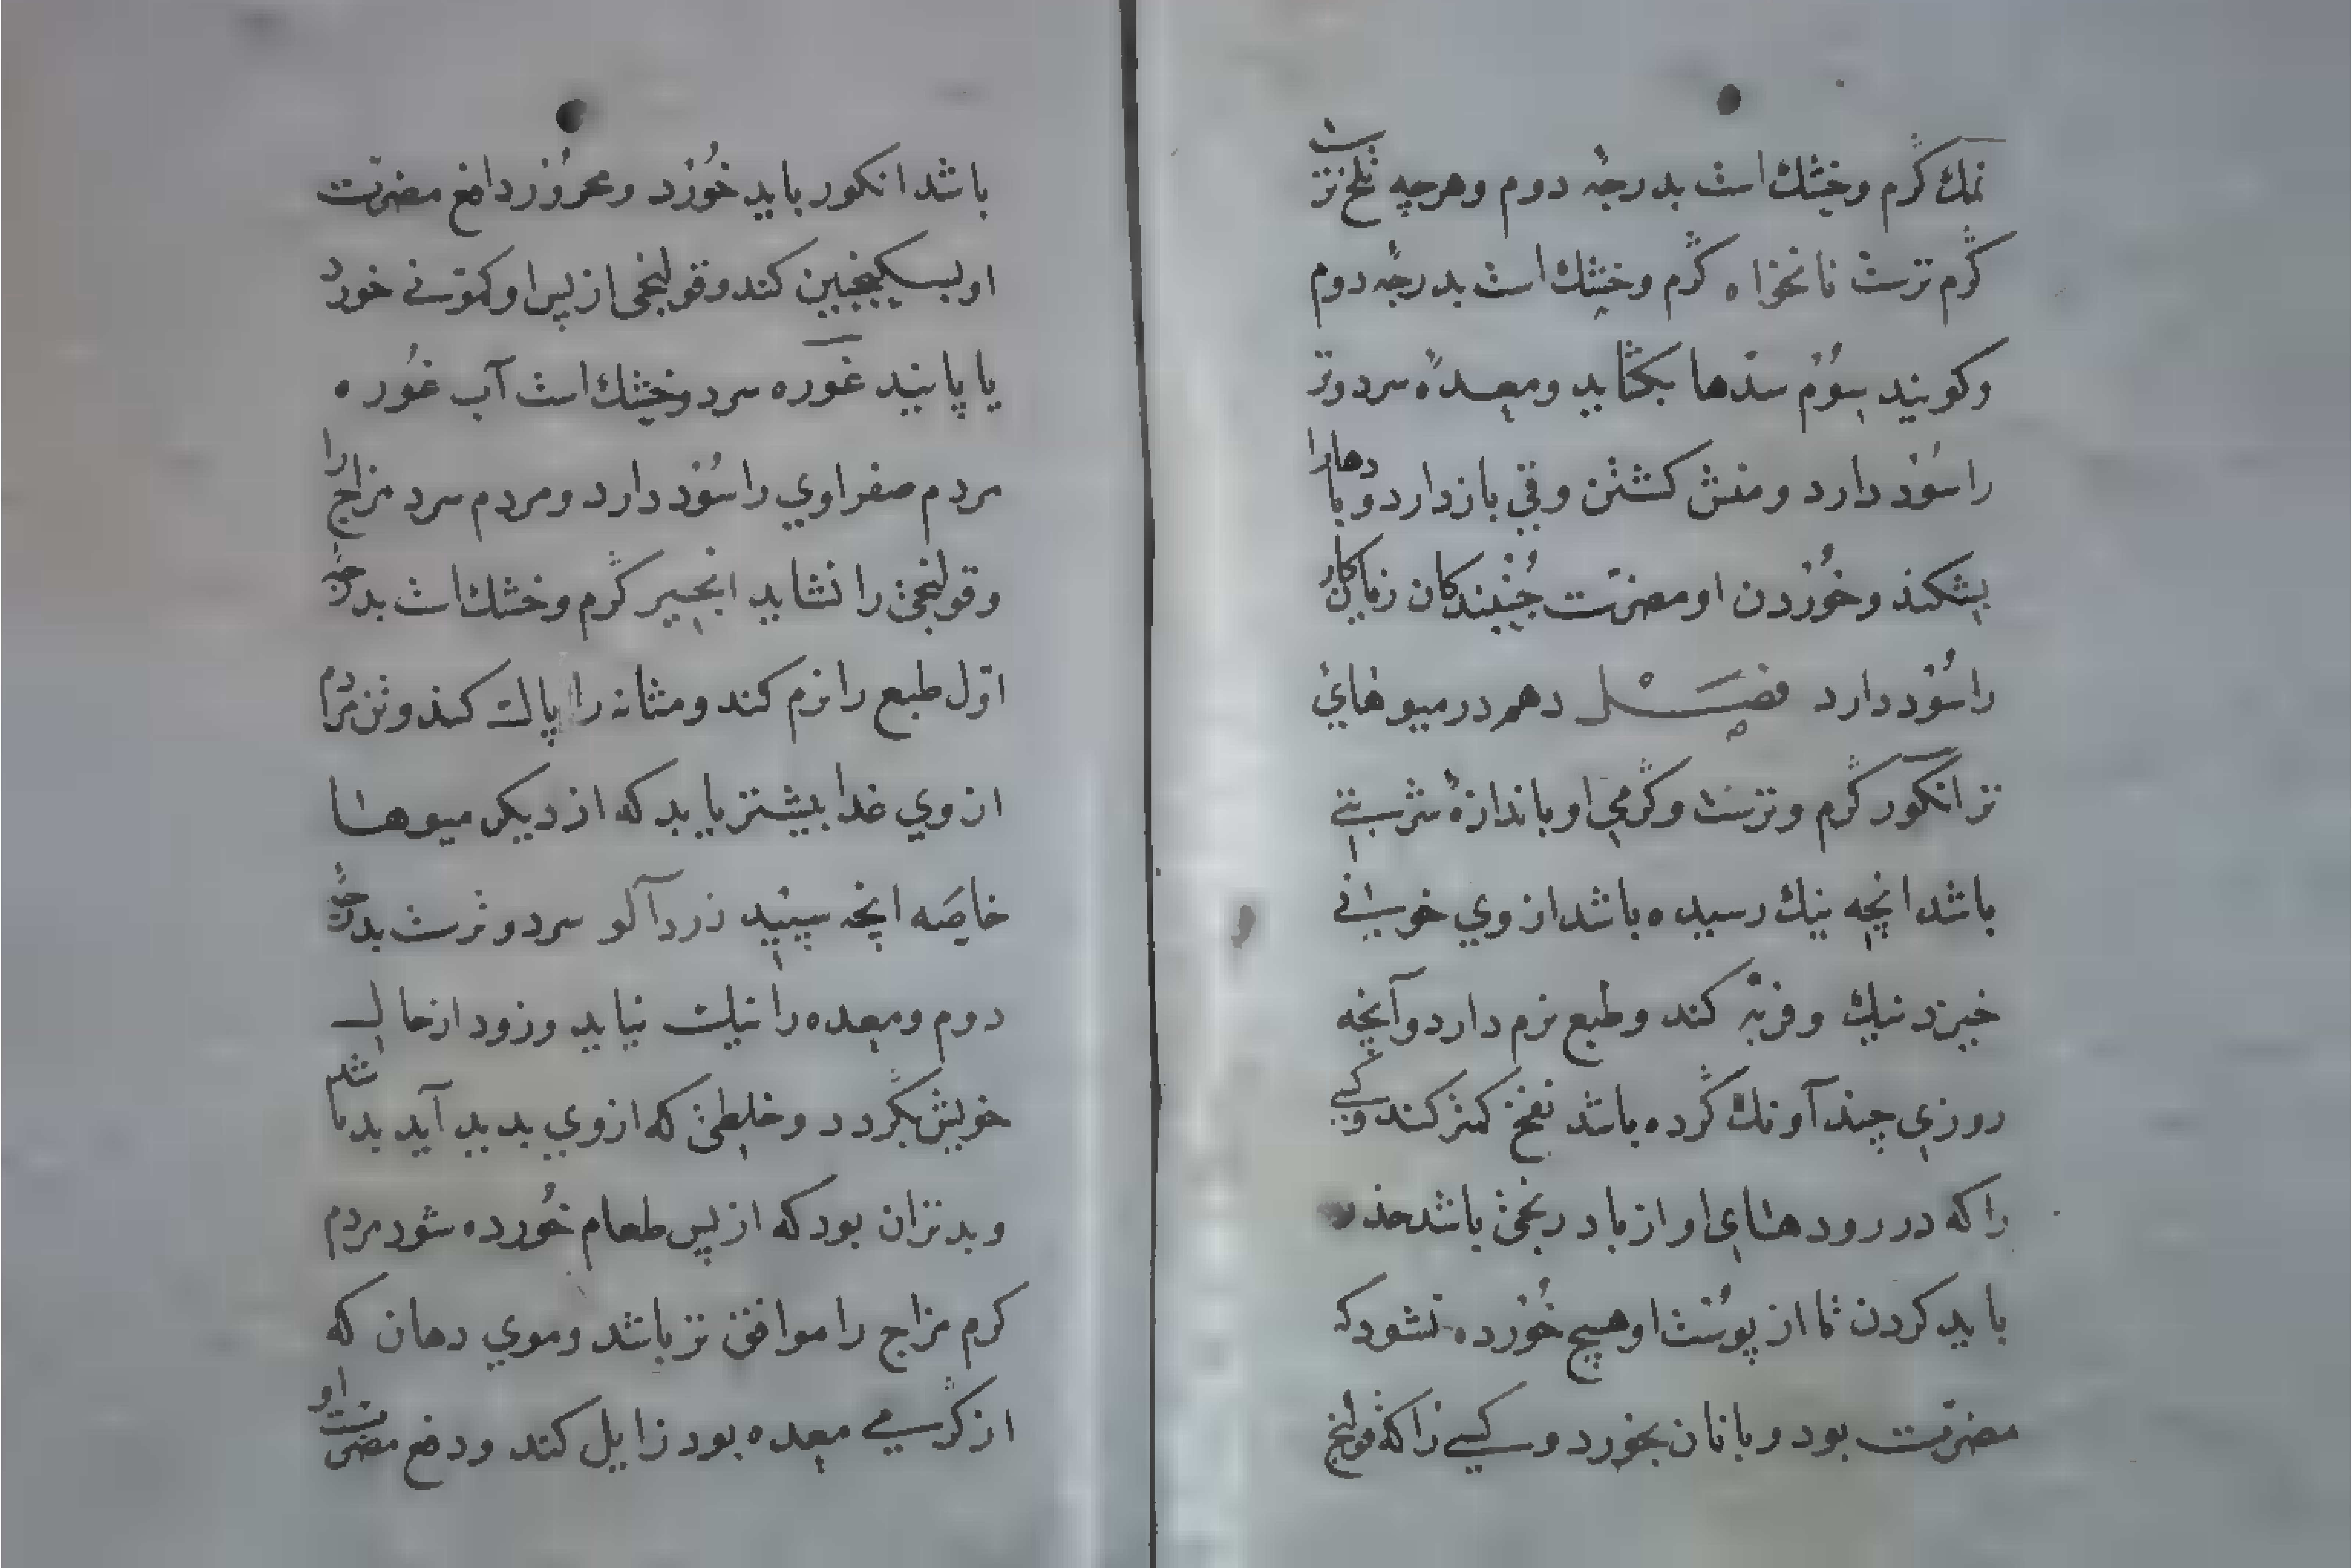 نمك گرم وخشك است بدرجه دوم وهرچه تلخ تر است
گرم ترست نانخواه گرم وخشك است بدرجه دوم
وكويند سوم سدها بكشايد ومعده سرد وتر
را سود دارد ومنش كشتن وقي باز دارد وبادها را
بشكند وخوردن او مضرت جنبندكان زيان كار
را سود دارد فصل دهم در ميوهاي
تر انگور گرم وترست وگرمي او باندازه شيريني
باشد انچه نيك رسيده باشد از وي خوني
خيزد نيك وفربه كند وطبع نرم دارد وآنچه
روزي چند آونك كرده باشد نفخ كمتر كند وكسي
را كه در رودهاي او از باد رنجي باشد حذر
بايد كردن تا از پوست او هيچ خورده نشود كه
مضرت بود وبا نان بخورد وكسي را كه قولنج
باشد انكور بايد خورد ومحرور دفع مضرت
او بسكنجبين كند وقولنجي از پس او كموني خورد
يا پانيد غوره سرد وخشك است آب غوره
مردم صفراوي را سود دارد ومردم سرد مزاج را
وقولنجي را نشايد انجير گرم وخشك است بدرجه
اول طبع را نرم كند ومثانه را پاك كند وتن مردم را
از وي غذا بيشتر يابد كه از ديكر ميوها
خاصه انچه سپيد زردآلو سرد وترست بدرجه
دوم ومعده را نيك نيايد وزود از حال
خويش بگردد وخلطي كه از وي بديد آيد بد باشد
وبدتر ان بود كه از پس طعام خورده شود مردم
كرم مزاج را موافق تر باشد وموي دهان كه
از گرمي معده بود زايل كند ودفع مضرت او